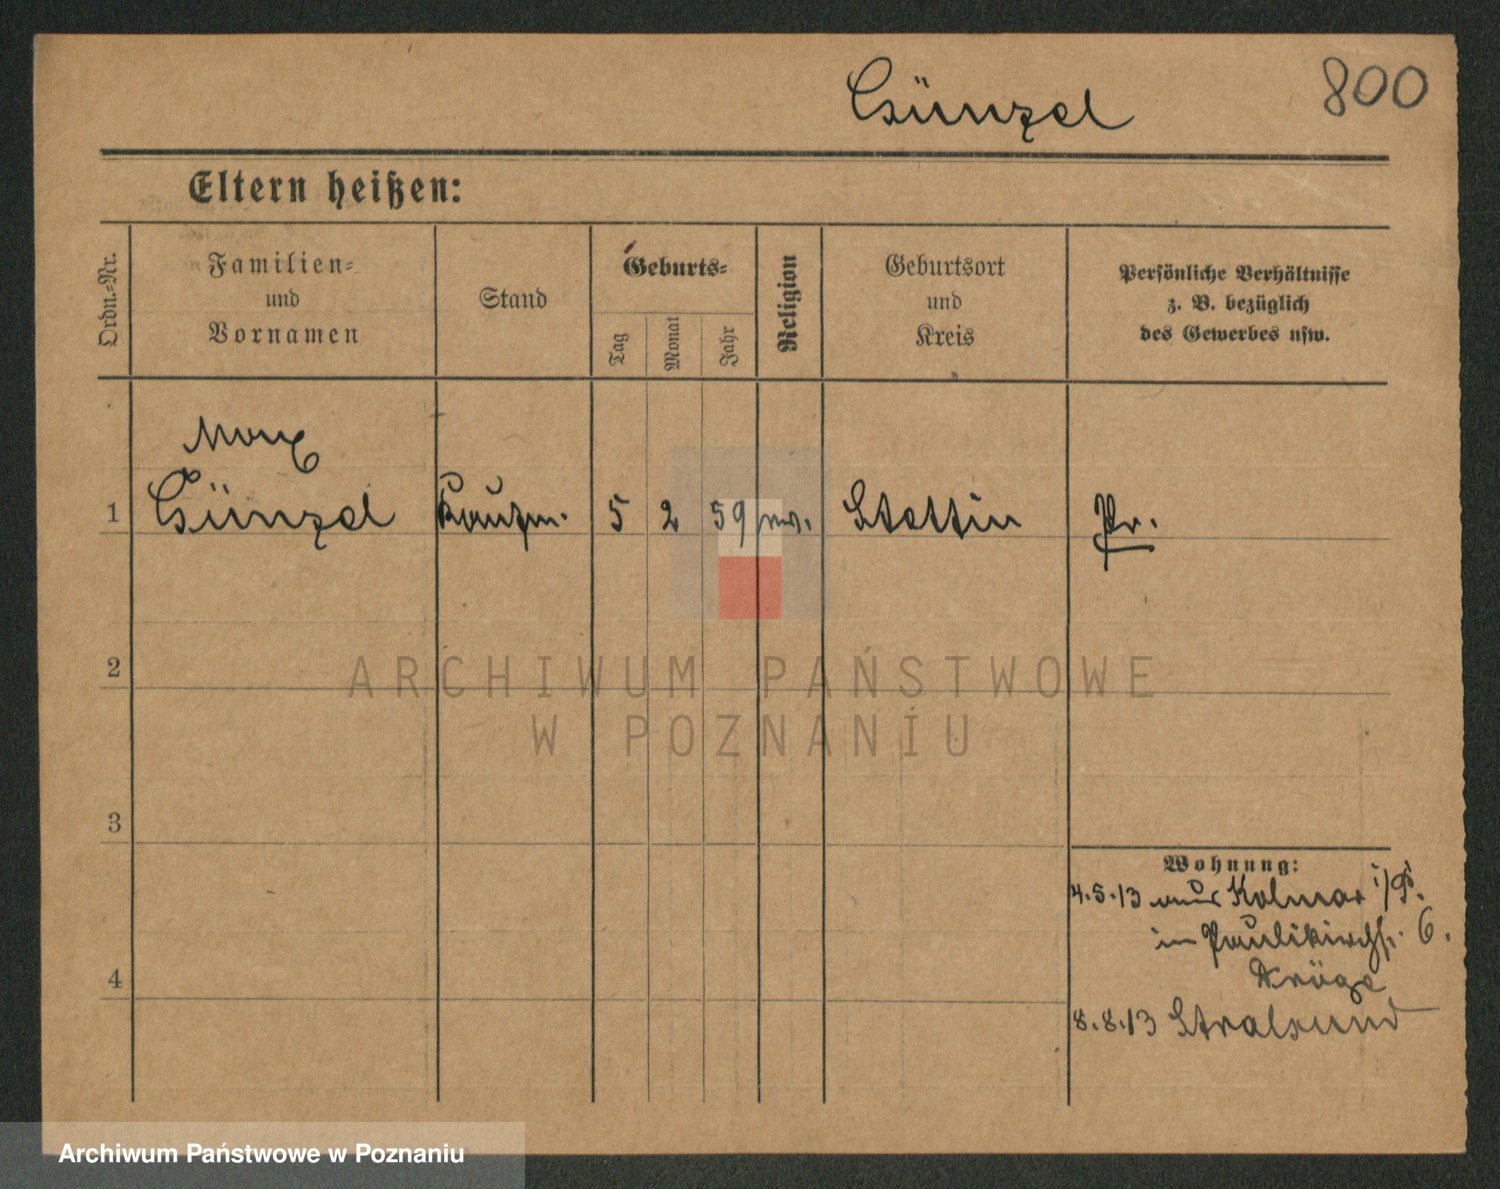 Günzel
800
Eltern heißen:
Ordn.-Nr.
Familien-
und
Vornamen
Stand
Geburts-
Tag
Monat
Jahr
Religion
Geburtsort
und
Kreis
Persönliche Verhältnisse
z. B. bezüglich
des Gewerbes usw.
Max
1 Günzel Kaufm. 5 2 59 ev. Stettin Pr.
2
3
4
Wohnung:
4.5.13 aus Kolmar i/P.
in Paulikirchstr. 6.
Kröge
8.8.13 Stralsund
ARCHIWUM PAŃSTWOWE
W POZNANIU
Archiwum Państwowe w Poznaniu